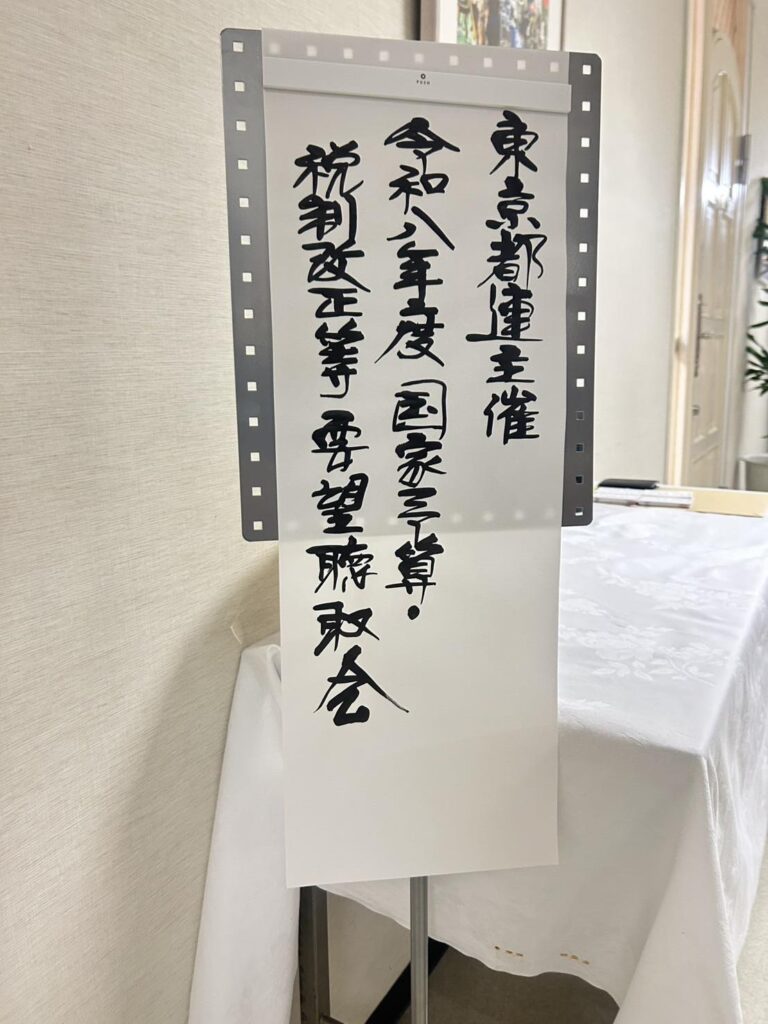 東京都連主催
令和八年度 国家予算・
税制改正等 要望聴取会
PUSH